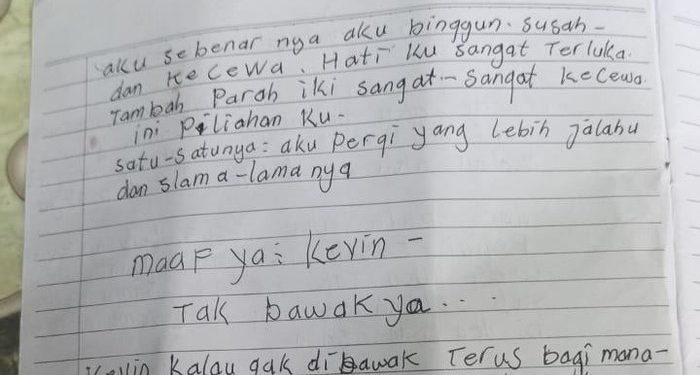 aku sebenar nya aku binggun. susah -
dan kecewa. Hati ku sangat Terluka.
Tambah Parah iki sangat-sangat kecewa.
ini Piliahan ku -
satu-satunya: aku pergi yang lebih jalahu
dan slama-lama nya
maaf ya: kevin -
Tak bawak ya...
Kevin kalau gak dibawak Terus bagi mana-